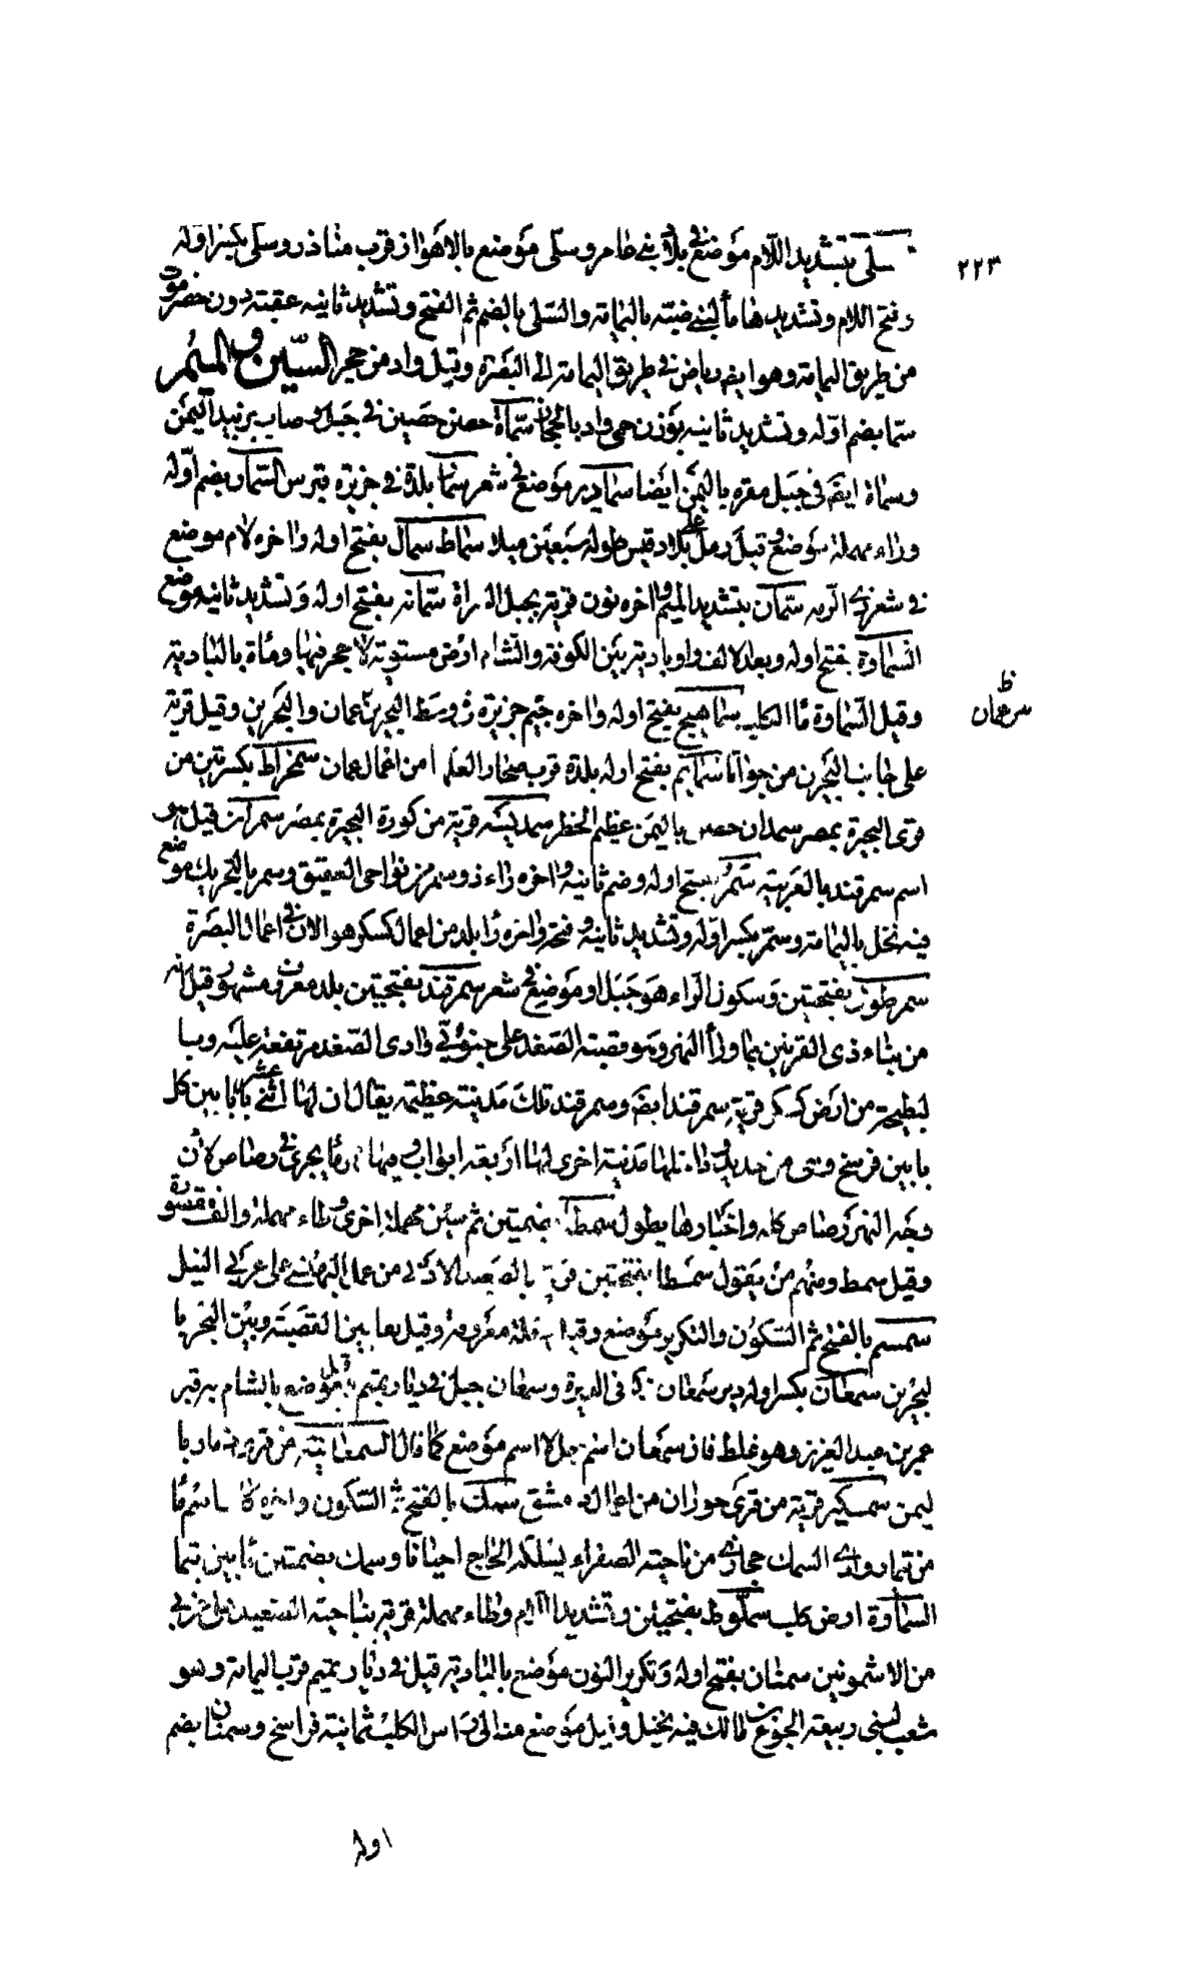 ٢٢٣
سلى بتشديد اللام موضع في بلاد بني عامر وسلى موضع بالاهواز قرب مناذر وسلى بكسر اوله
وفتح اللام وتشديدها ماء لبني ضبة باليمامة والسلى بالضم ثم الفتح وتشديد ثانيه عقبة دون حضرموت
من طريق اليمامة وهو ايضا رياض في طريق اليمامة الى البصرة وقيل واد من حجر السين والميم
سما بضم اوله وتشديد ثانيه بوزن حمى واد بالحجاز سماة حصن حصين في جبل وصاب بزبيد اليمن
وسماة ايضا في جبل مقره باليمن ايضا سمادير موضع في شعر سما بلدة في جزيرة قبرس السمار بضم اوله
وراء مهملة موضع وقيل رمل على بلاد قيس طوله سبعين ميلا سماط سمال بفتح اوله واخره لام موضع
في شعر ذي الرمه سمان بتشديد الميم واخره نون قرية بجبل السراة سمانه بفتح اوله وتشديد ثانيه موضع
السماوة بفتح اوله وبعد الالف واو بادية بين الكوفة والشام ارض مستوية لا حجر فيها وماة بالبادية
وقيل السماوة ماء لكلب سماهيج بفتح اوله واخره جيم جزيرة في وسط البحر بين عمان والبحرين وقيل قرية
على جانب البحرين من جواثا سمايم بفتح اوله بلدة قرب صحار والعليا من اعمال عمان سمخراط بكسرتين من
قرى البحيرة بمصر سمدان حصن باليمن عظيم الخطر سمديسه قرية من كورة البحيرة بمصر سمران قيل هو
اسم سمرقند بالعربية سمر بفتح اوله وضم ثانيه واخره راء ذو سمر من نواحى العقيق وسمر بالتحريك موضع
فيه نخل باليمامة وسمر بكسر اوله وتشديد ثانيه وفتحه واخره را بلد من اعمال كسكر وهو الان في اعمال البصرة
سمرطور بفتحتين وسكون الراء هو جبل او موضع في شعر سمرقند بفتحتين بلد معروف مشهور قيل انه
من بناء ذي القرنين بما وراء النهر وهو قصبة الصغد على جنوبي وادى الصغد مرتفعة عليه وبا
لبطيحة من ارض كسكر قرية سمرقند ايضا وسمرقند تلك مدينة عظيمة يقال ان لها اثني عشر بابا بين كل
بابين فرسخ وهي من حديد وداخلها مدنية اخرى لها اربعة ابواب وفيها ماء يجرى في رصاص لان
وجه النهر رصاص كله واخبارها يطول سمسطا بضمتين ثم سين مهملة اخرى وطاء مهملة والف مقصورة
وقيل سمط ومنهم من يقول سمسطا بفتحتين قرية بالصعيد الادنى من عمل البهنسى على غربي النيل
سمسم بالفتح ثم السكون والتكرير موضع وقيل رملة معروفة وقيل بها بين القصبة وبين البحر با
لبحرين سمعان بكسر اوله دير سمعان في الديرة وسمعان جبل في ديار تميم قيل موضع بالشام به قبر
عمر بن عبد العزيز وهو غلط فان سمعان اسم رجل لا اسم موضع كما قال السمعانية من قرى ذمار با
ليمن سمسكين قرية من قرى حوران من اعمال دمشق سمك بالفتح ثم السكون واخره كاف اسم ماء
من تيماء ووادي السمك حجازي من ناحية الصفراء يسلكه الحاج احيانا وسمك بضمتين ماء بين تيما
السماوة ارض كلب سملوط بفتحتين وتشديد اللام وطاء مهملة قرية بناحية الصعيد على غربي
من الاشمونين سمنان بفتح اوله وتكرير النون موضع بالبادية قيل في ديار تميم قرب اليمامة وهو
شعب لبنى ربيعة الجوع بن مالك فيه نخيل وقيل موضع منه الى راس الكلب ثمانية فراسخ وسمنان بضم
ظ
سرطان
اوله